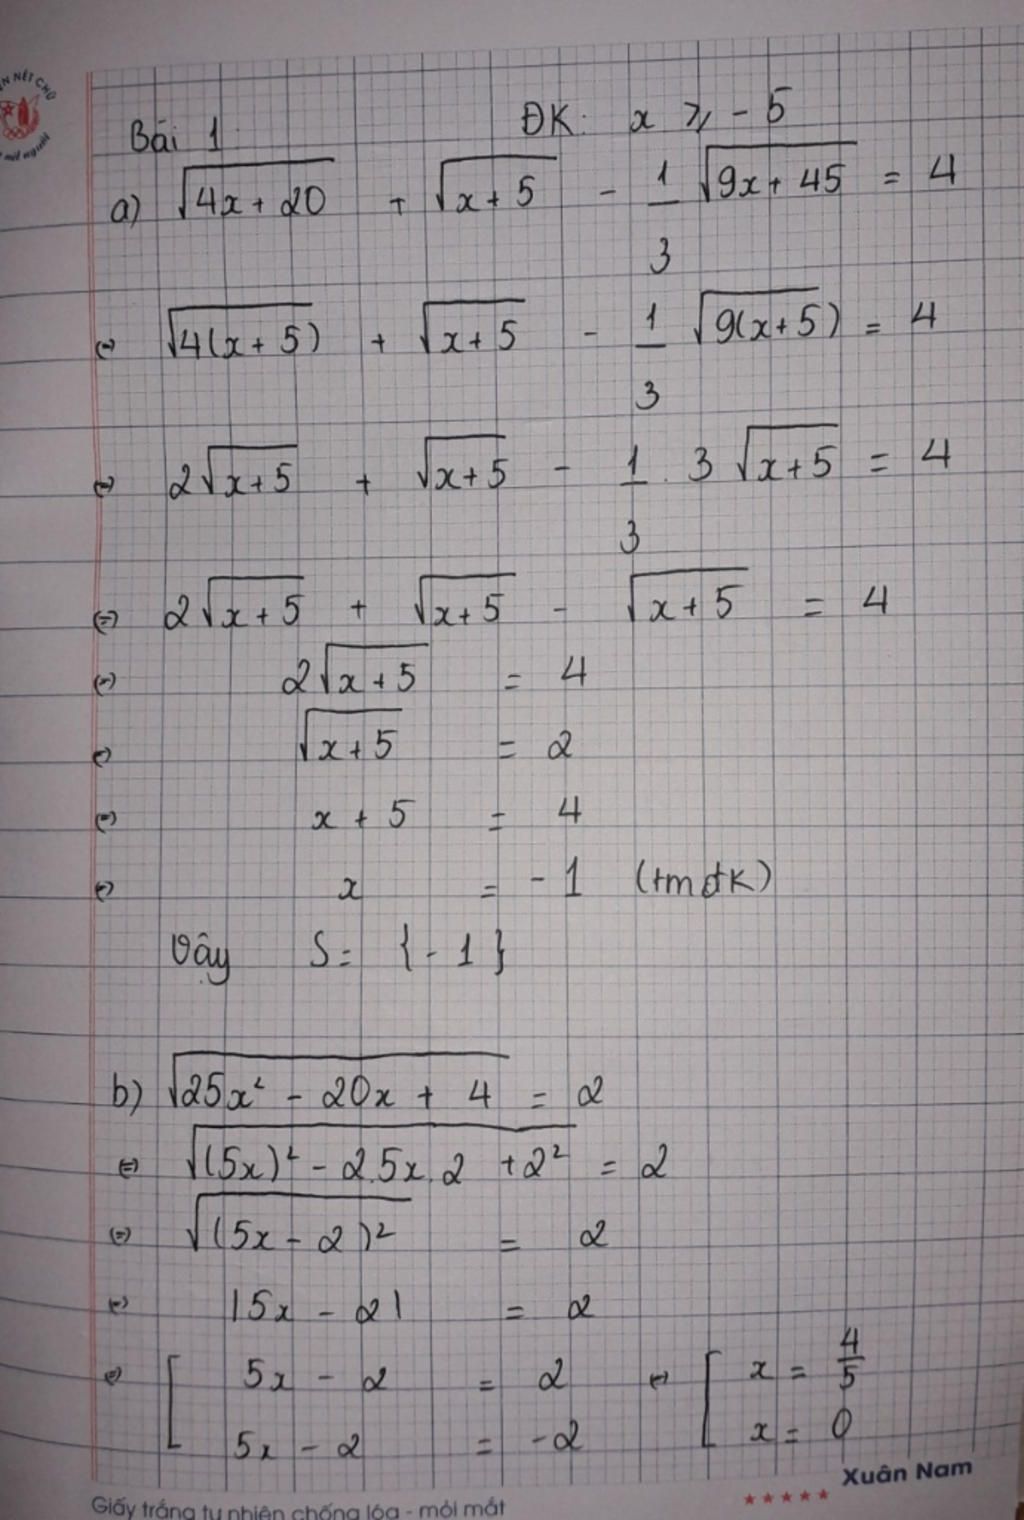 ÈN NÉT CHỮ
nết người
Bài 1: ĐK: x ⩾ -5
a) √(4x + 20) + √(x + 5) - 1/3 √(9x + 45) = 4
⇔ √(4(x + 5)) + √(x + 5) - 1/3 √(9(x + 5)) = 4
⇔ 2√(x + 5) + √(x + 5) - 1/3 . 3 √(x + 5) = 4
⇔ 2√(x + 5) + √(x + 5) - √(x + 5) = 4
⇔ 2√(x + 5) = 4
⇔ √(x + 5) = 2
⇔ x + 5 = 4
⇔ x = -1 (tmđk)
Vậy S = {-1}
b) √(25x² - 20x + 4) = 2
⇔ √((5x)² - 2.5x.2 + 2²) = 2
⇔ √((5x - 2)²) = 2
⇔ |5x - 2| = 2
⇔ [ 5x - 2 = 2 ⇔ [ x = 4/5
5x - 2 = -2 x = 0
Xuân Nam
Giấy trắng tự nhiên chống lóa - mỏi mắt